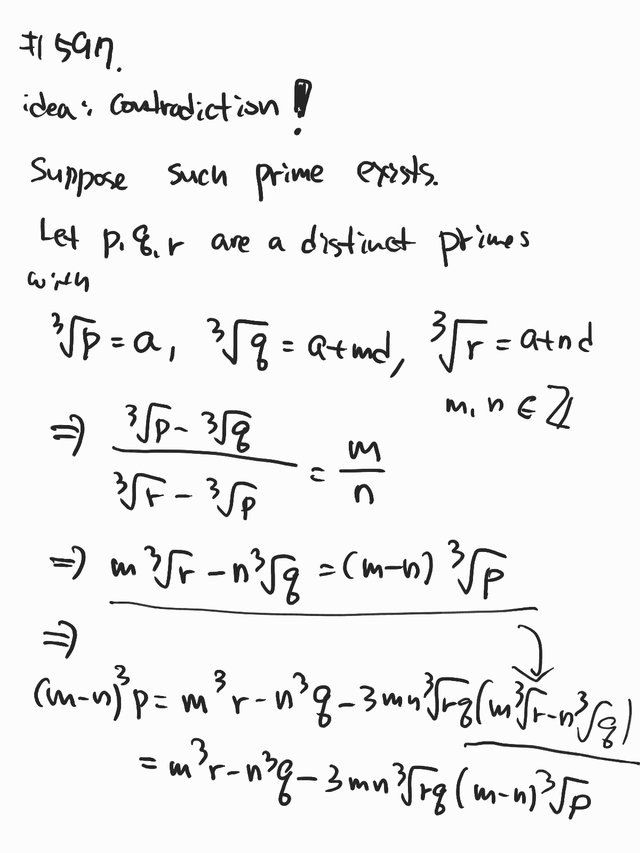 #597.
idea: Contradiction!
Suppose such prime exists.
Let p, q, r are a distinct primes
with
∛p = a, ∛q = a+md, ∛r = a+nd
m, n ∈ ℤ
⇒ (∛p - ∛q)/(∛r - ∛p) = m/n
⇒ m∛r - n∛q = (m-n) ∛p
⇒
(m-n)³p = m³r - n³q - 3mn∛rq(m∛r - n∛q)
= m³r - n³q - 3mn∛rq (m-n)∛p